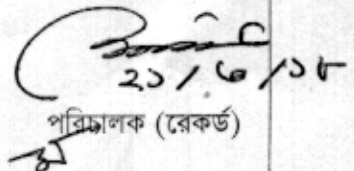 ২১/৬/১৮
পরিচালক (রেকর্ড)